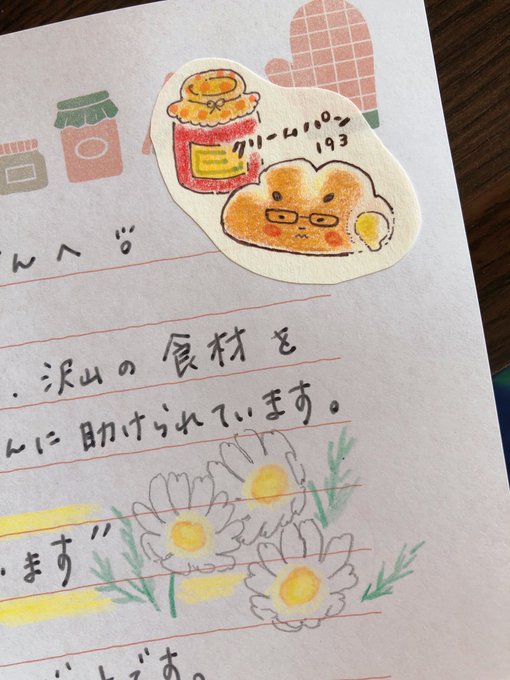 クリームパン
193
んへ
沢山の食材を
んに助けられています。
います”
です。